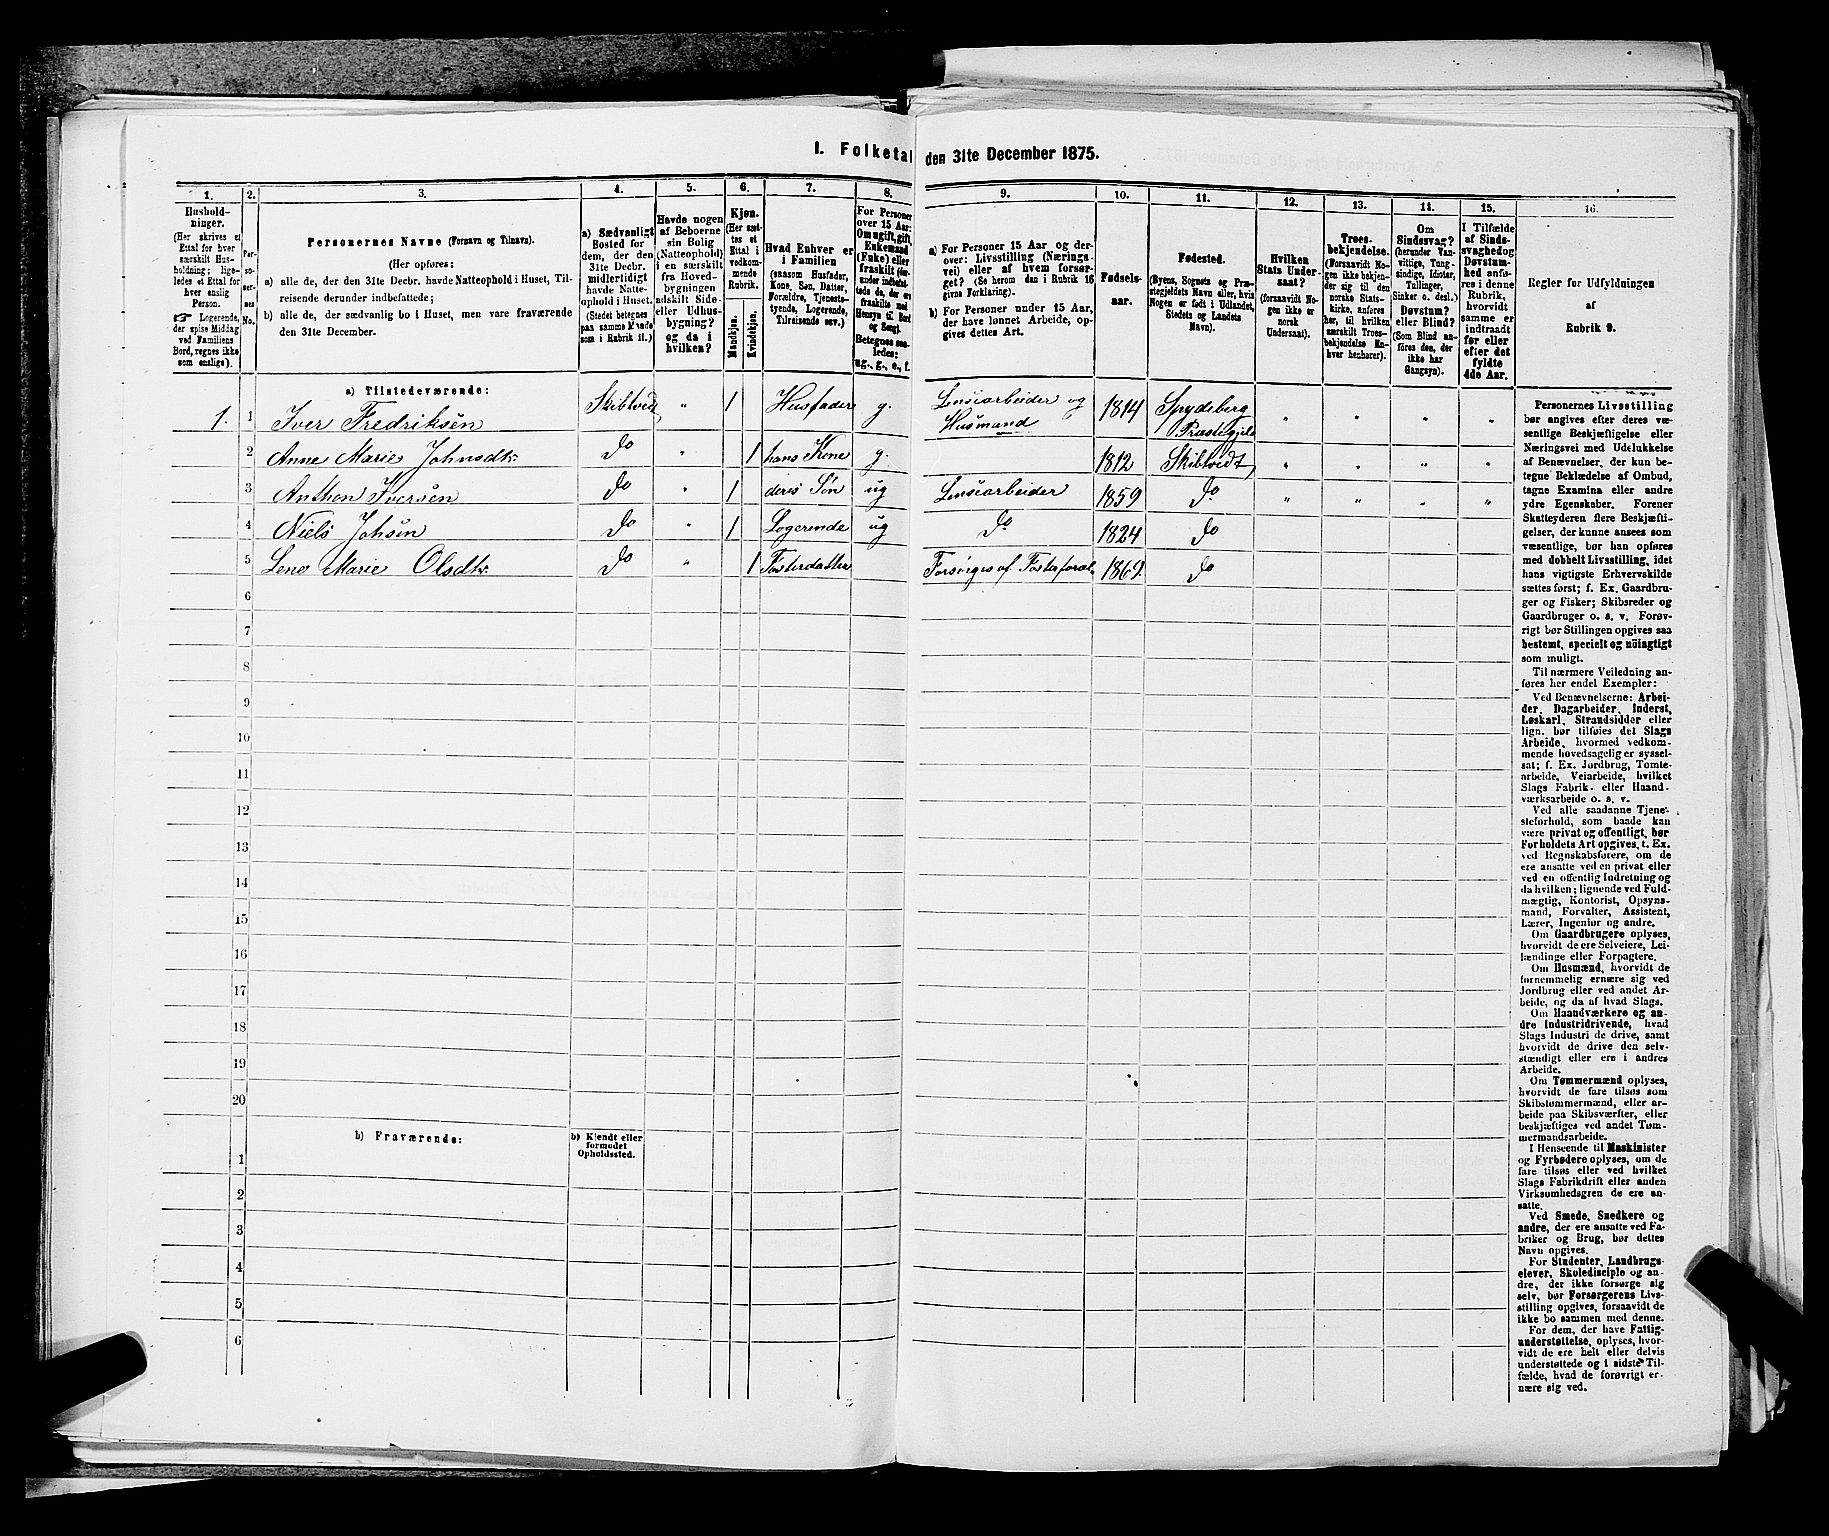 I. Folketal den 31te December 1875.
1.
Hushold-
ninger.
(Her skrives et
Ettal for hver
særskilt Hus-
holdning; lige-
ledes et Ettal for
hver enslig
Person.
Logerende,
der spise Middag
ved Familiens
Bord, regnes ikke
som enslige).
2.
Per-
so-
ner-
nes
No.
3.
Personernes Navne (Fornavn og Tilnavn).
(Her opføres:
a) alle de, der den 31te Decbr. havde Natteophold i Huset, Til-
reisende derunder indbefattede;
b) alle de, der sædvanlig bo i Huset, men vare fraværende
den 31te December.
4.
a) Sædvanligt
Bosted for
dem, der den
31te Decbr.
midlertidigt
havde Natte-
ophold i Huset.
(Stedet betegnes
paa samme Maade
som i Rubrik 11.)
5.
Havde nogen
af Beboerne
sin Bolig
(Natteophold)
i en særskilt
fra Hoved-
bygningen
adskilt Side-
eller Udhus-
bygning?
og da i
hvilken?
6.
Kjøn.
(Her sæt-
tes et
Ettal i
vedkom-
mende
Rubrik.
Mandkjøn.
Kvindekjøn.
7.
Hvad Enhver er
i Familien
(saasom Husfader,
Kone, Søn, Datter,
Forældre, Tjeneste-
tyende, Logerende,
Tilreisende osv.)
8.
For Personer
over 15 Aar:
Om ugift, gift,
Enkemand
(Enke) eller
fraskilt (der-
under indbefat-
tede de, der ere
fraskilte med
Hensyn til Bord
og Seng).
Betegnes saa-
ledes:
ug., g., e., f.
9.
a) For Personer 15 Aar og der-
over: Livsstilling (Nærings-
vei) eller af hvem forsør-
get? (Se herom den i Rubrik 16
givne Forklaring).
b) For Personer under 15 Aar,
der have lønnet Arbeide, op-
gives dettes Art.
10.
Fødsels-
aar.
11.
Fødested.
(Byens, Sognets og Præ-
stegjeldets Navn eller, hvis
Nogen er født i Udlandet,
Stedets og Landets
Navn).
12.
Hvilken
Stats Under-
saat?
(forsaavidt No-
gen ikke er
norsk
Undersaat).
13.
Troes-
bekjendelse.
(Forsaavidt No-
gen ikke bekjen-
der sig til den
norske Stats-
kirke, anføres
her, til hvilken
særskilt Troes-
bekjendelse En-
hver henhører).
14.
Om
Sindssvag?
(herunder Van-
vittige, Tung-
sindige, Idioter,
Tullinger,
Sinker o. desl.)
Døvstum?
eller Blind?
(Som Blind an-
føres den, der
ikke har
Gangsyn).
15.
I Tilfælde
af Sinds-
svaghed og
Døvstum-
hed anfø-
res i denne
Rubrik,
hvorvidt
samme er
indtraadt
før eller
efter det
fyldte
4de Aar.
16.
Regler for Udfyldningen
af
Rubrik 9.
a) Tilstedeværende:
1. 1 Iver Fredriksen Skibtvedt " 1 Husfader g. Lensiarbeider og Husmand 1814 Spydeberg Præstegjeld " " " "
2 Anne Marie Johnsdtr. Do " 1 hans Kone g. 1812 Skibtvedt " " " "
3 Anthon Iversen Do " 1 deris Søn ug Lensiarbeider 1859 Do " " " "
4 Niels Johsen Do " 1 Logerende ug Do 1824 Do
5 Lene Marie Olsdtr. Do " 1 Fosterdatter Forsørges af Fosterforæl. 1869. Do
6
7
8
9
10
11
12
13
14
15
16
17
18
19
20
b) Fraværende:
b) Kjendt eller
formodet
Opholdssted.
1
2
3
4
5
6
Personernes Livsstilling
bør angives efter deres væ-
sentlige Beskjæftigelse eller
Næringsvei med Udelukkelse
af Benævnelser, der kun be-
tegne Beklædelse af Ombud,
tagne Examina eller andre
ydre Egenskaber. Forener
Skatteyderen flere Beskjæfti-
gelser, der kunne ansees som
væsentlige, bør han opføres
med dobbelt Livsstilling, idet
hans vigtigste Erhvervskilde
sættes først; f. Ex. Gaardbru-
ger og Fisker; Skibsreder og
Gaardbruger o. s. v. Forøv-
rigt bør Stillingen opgives saa
bestemt, specielt og nöiagtigt
som muligt.
Til nærmere Veiledning an-
føres her endel Exempler:
Ved Benævnelserne: Arbei-
der, Dagarbeider, Inderst,
Løskarl, Strandsidder eller
lign. bør tilføies det Slags
Arbeide, hvormed vedkom-
mende hovedsagelig er syssel-
sat; f. Ex. Jordbrug, Tomte-
arbeide, Veiarbeide, hvilket
Slags Fabrik- eller Haand-
værksarbeide o. s. v.
Ved alle saadanne Tjene-
steforhold, som baade kan
være privat og offentligt, bør
Forholdets Art opgives, t. Ex.
ved Regnskabsførere, om de
ere ansatte ved en privat eller
ved en offentlig Indretning og
da hvilken; lignende ved Fuld-
mægtig, Kontorist, Opsyns-
mand, Forvalter, Assistent,
Lærer, Ingeniør og andre.
Om Gaardbrugere oplyses,
hvorvidt de ere Selveiere, Lei-
lændinge eller Forpagtere.
Om Husmænd, hvorvidt de
fornemmelig ernære sig ved
Jordbrug eller ved andet Ar-
beide, og da af hvad Slags.
Om Haandværkere og an-
dre Industridrivende, hvad
Slags Industri de drive, samt
hvorvidt de drive den selv-
stændigt eller ere i andres
Arbeide.
Om Tømmermænd oplyses,
hvorvidt de fare tilsøs som
Skibstømmermænd, eller ar-
beide paa Skibsværfter, eller
beskjæftiges ved andet Tøm-
mermandsarbeide.
I Henseende til Maskinister
og Fyrbødere oplyses, om de
fare tilsøs eller ved hvilket
Slags Fabrikdrift eller anden
Virksomhedsgren de ere an-
satte.
Ved Smede, Snedkere og
andre, der ere ansatte ved Fa-
briker og Brug, bør dettes
Navn opgives.
For Studenter, Landbrugs-
elever, Skoledisciple og an-
dre, der ikke forsørge sig
selv, bør Forsørgerens Livs-
stilling opgives, forsaavidt de
ikke bo sammen med denne.
For dem, der have Fattig-
understøttelse, oplyses, hvor-
vidt de ere helt eller delvis
understøttede og i sidste Til-
fælde, hvad de forøvrigt er-
nære sig ved.